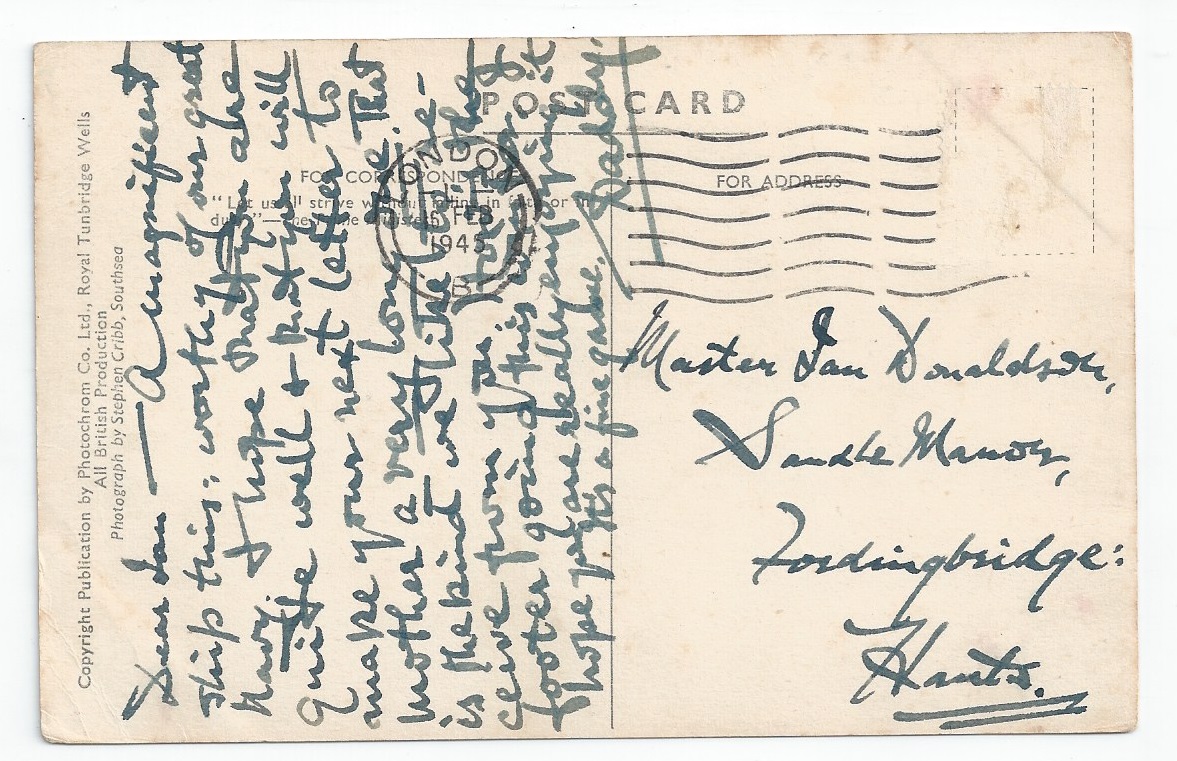 Copyright Publication by Photochrom Co. Ltd., Royal Tunbridge Wells
All British Production
Photograph by Stephen Cribb, Southsea
POST CARD
FOR CORRESPONDENCE
FOR ADDRESS
"Let us all strive without failing in faith or in
duty"—The Prime Minister
LONDON
FEB
1945
B
Dear Ian — A magnificent
ship this: worthy of our great
Navy. I hope that you are
quite well & that you will
make your next letter to
mother a very long one. That
is the kind we like to re-
ceive from you. How is the
footer going this term? I
hope you are really enjoying it
It's a fine game. Daddy.
Master Ian Donaldson,
Sandle Manor,
Fordingbridge:
Hants.